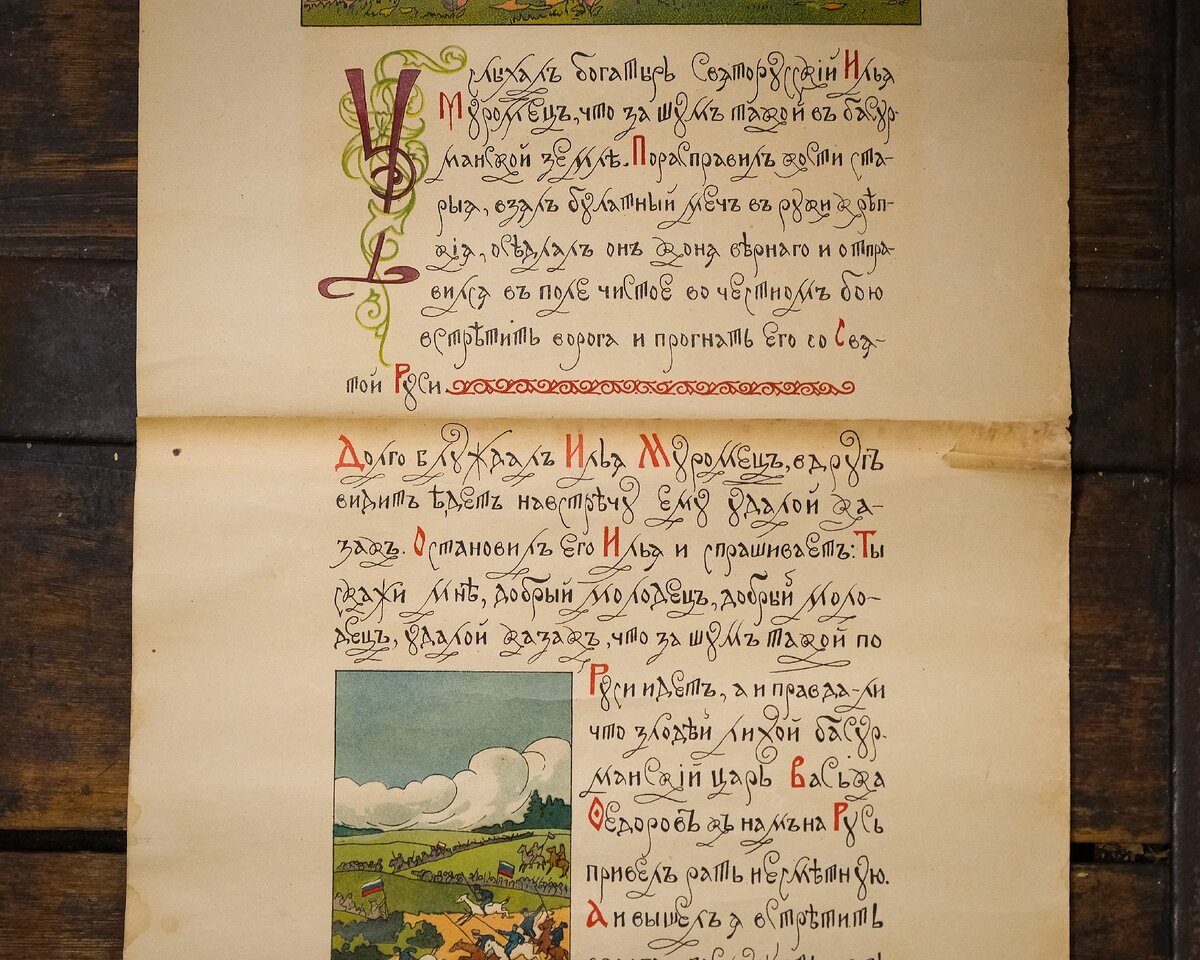 Услыхалъ богатырь Святорусскій Илья
Муромецъ, что за шумъ такой въ басур-
манской землѣ. Порасправилъ кости ста-
рыя, взялъ булатный мечъ въ руки крѣп-
кія, осѣдлалъ онъ коня вѣрнаго и отпра-
вился въ поле чистое во честномъ бою
встрѣтить ворога и прогнать его со Свя-
той Руси.
Долго блуждалъ Илья Муромецъ, вдругъ
видитъ ѣдетъ навстрѣчу ему удалой ка-
закъ. Остановилъ его Илья и спрашиваетъ: Ты
скажи мнѣ, добрый молодецъ, добрый моло-
децъ, удалой казакъ, что за шумъ такой по
Руси идетъ, а и правда-ли
что злодѣй лихой басур-
манскій царь Васька
Ѳедоровъ къ намъ на Русь
привелъ рать несмѣтную.
А и вышелъ я встрѣтить